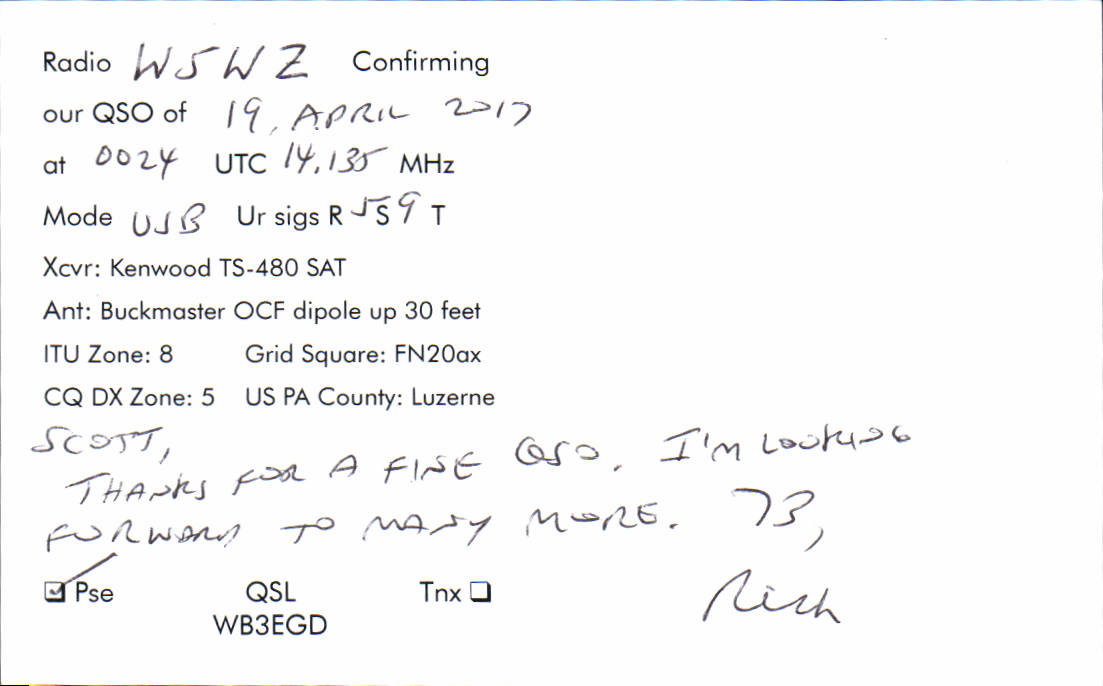 Radio W5WZ Confirming
our QSO of 19, APRIL 2017
at 0024 UTC 14,135 MHz
Mode USB Ur sigs R 5 S 9 T
Xcvr: Kenwood TS-480 SAT
Ant: Buckmaster OCF dipole up 30 feet
ITU Zone: 8 Grid Square: FN20ax
CQ DX Zone: 5 US PA County: Luzerne
SCOTT,
THANKS FOR A FINE QSO. I'M LOOKING
FORWARD TO MANY MORE. 73,
☑ Pse QSL Tnx ☐
WB3EGD
Rich